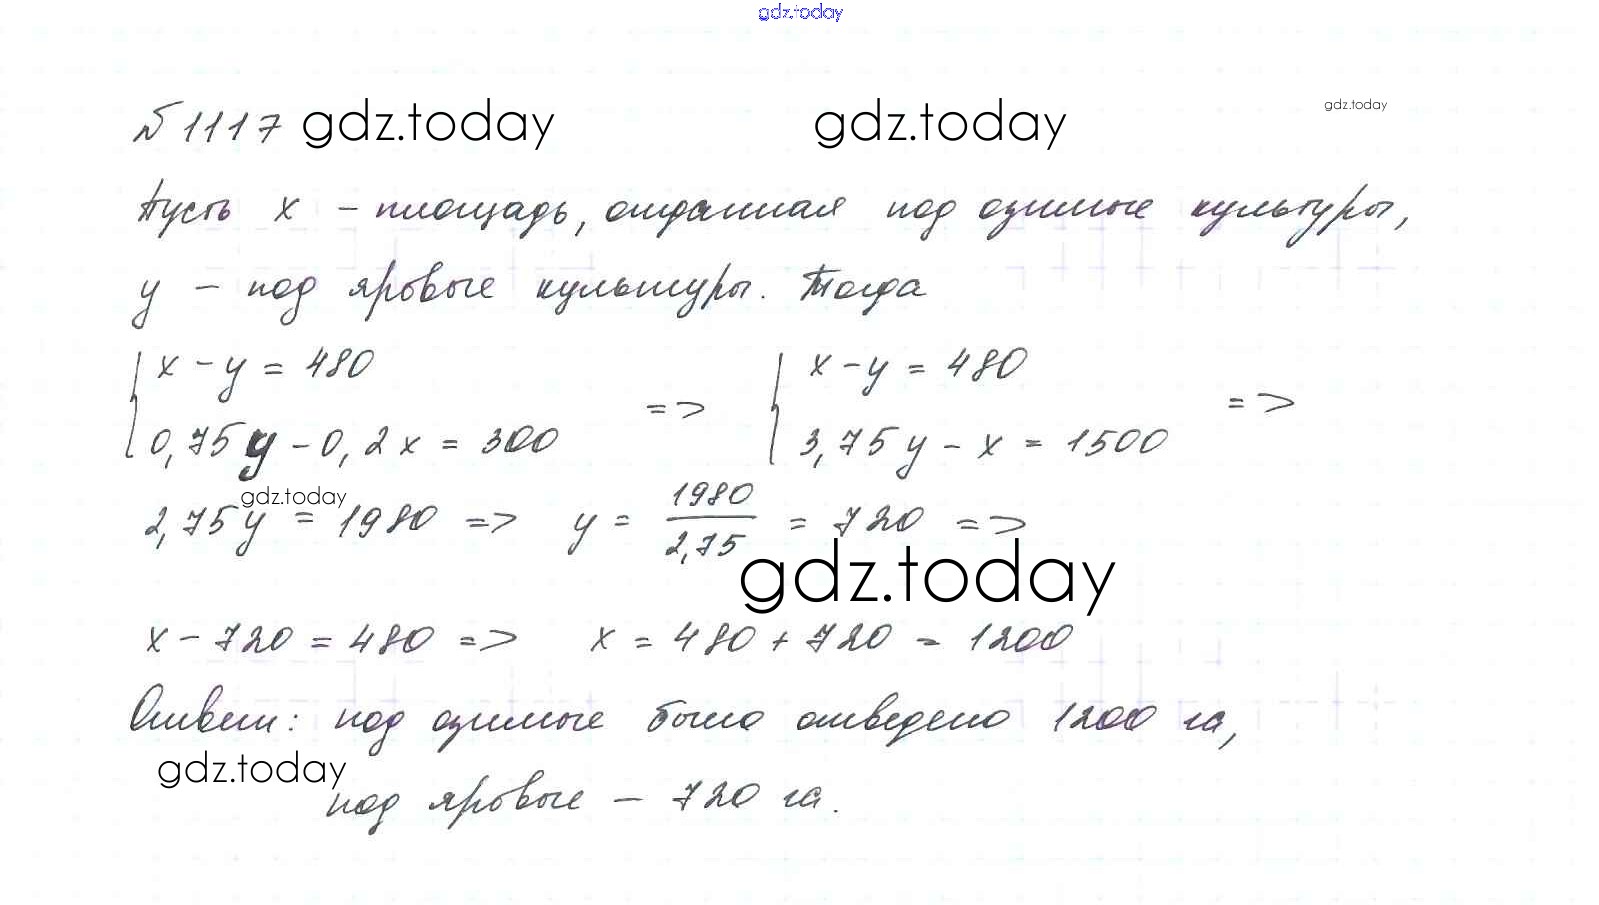 gdz.today
№ 1117 gdz.today gdz.today gdz.today
Пусть x – площадь, отданная под озимые культуры,
y – под яровые культуры. Тогда
{ x - y = 480 => { x - y = 480 =>
0,75y - 0,2x = 300 3,75y - x = 1500
gdz.today
2,75y = 1980 => y = 1980/2,75 = 720 =>
gdz.today
x - 720 = 480 => x = 480 + 720 = 1200
Ответ: под озимые было отведено 1200 га,
gdz.today
под яровые – 720 га.